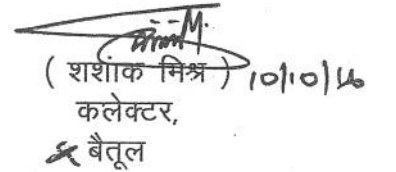 ( शशांक मिश्र ) 10/10/16
कलेक्टर,
बैतूल